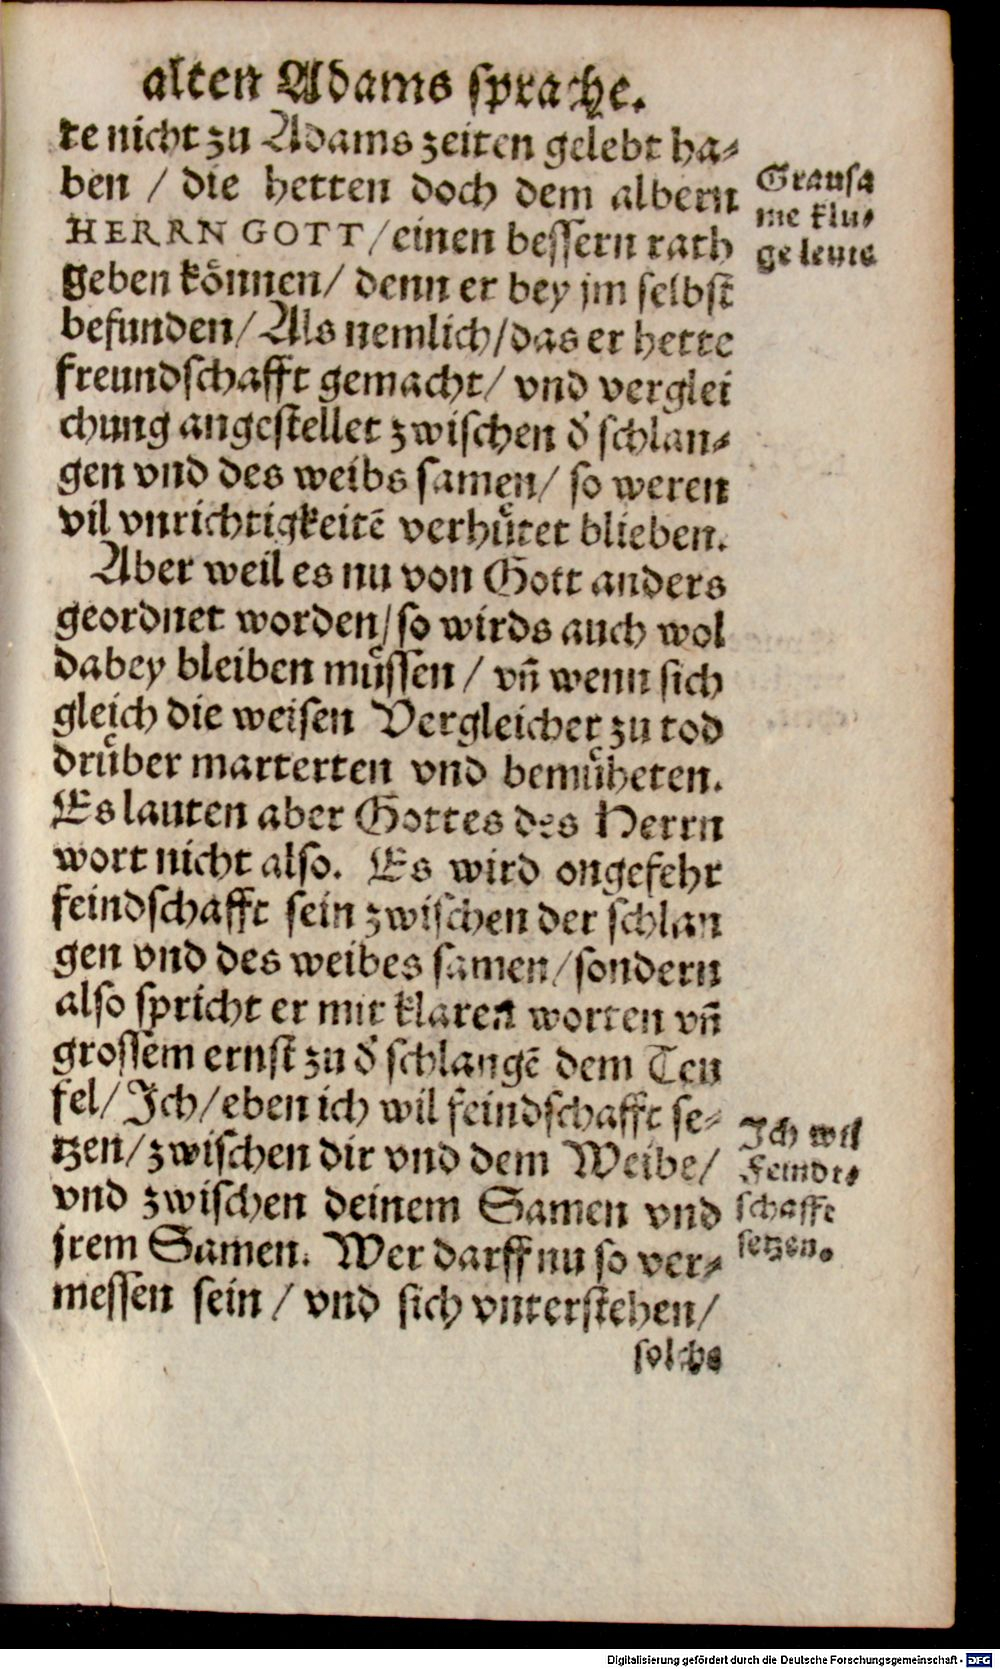 alten Adams sprache.
te nicht zu Adams zeiten gelebt ha⸗
ben / die hetten doch dem albern
HERRN GOTT / einen bessern rath
geben koͤnnen / denn er bey jm selbst
befunden / Als nemlich / das er hette
freundschafft gemacht / vnd verglei
chung angestellet zwischen d' schlan⸗
gen vnd des weibs samen / so weren
vil vnrichtigkeitē verhuͤtet blieben.
Aber weil es nu von Gott anders
geordnet worden / so wirds auch wol
dabey bleiben muͤssen / vn̄ wenn sich
gleich die weisen Vergleicher zu tod
druͤber marterten vnd bemuͤheten.
Es lauten aber Gottes des Herrn
wort nicht also. Es wird ongefehr
feindschafft sein zwischen der schlan
gen vnd des weibes samen / sondern
also spricht er mit klaren worten vn̄
grossem ernst zu d' schlangē dem Teu
fel / Ich / eben ich wil feindschafft se⸗
tzen / zwischen dir vnd dem Weibe /
vnd zwischen deinem Samen vnd
jrem Samen. Wer darff nu so ver⸗
messen sein / vnd sich vnterstehen /
solche
Grausa
me klu⸗
ge leute
Ich wil
Feindt⸗
schafft
setzen.
Digitalisierung gefördert durch die Deutsche Forschungsgemeinschaft - DFG